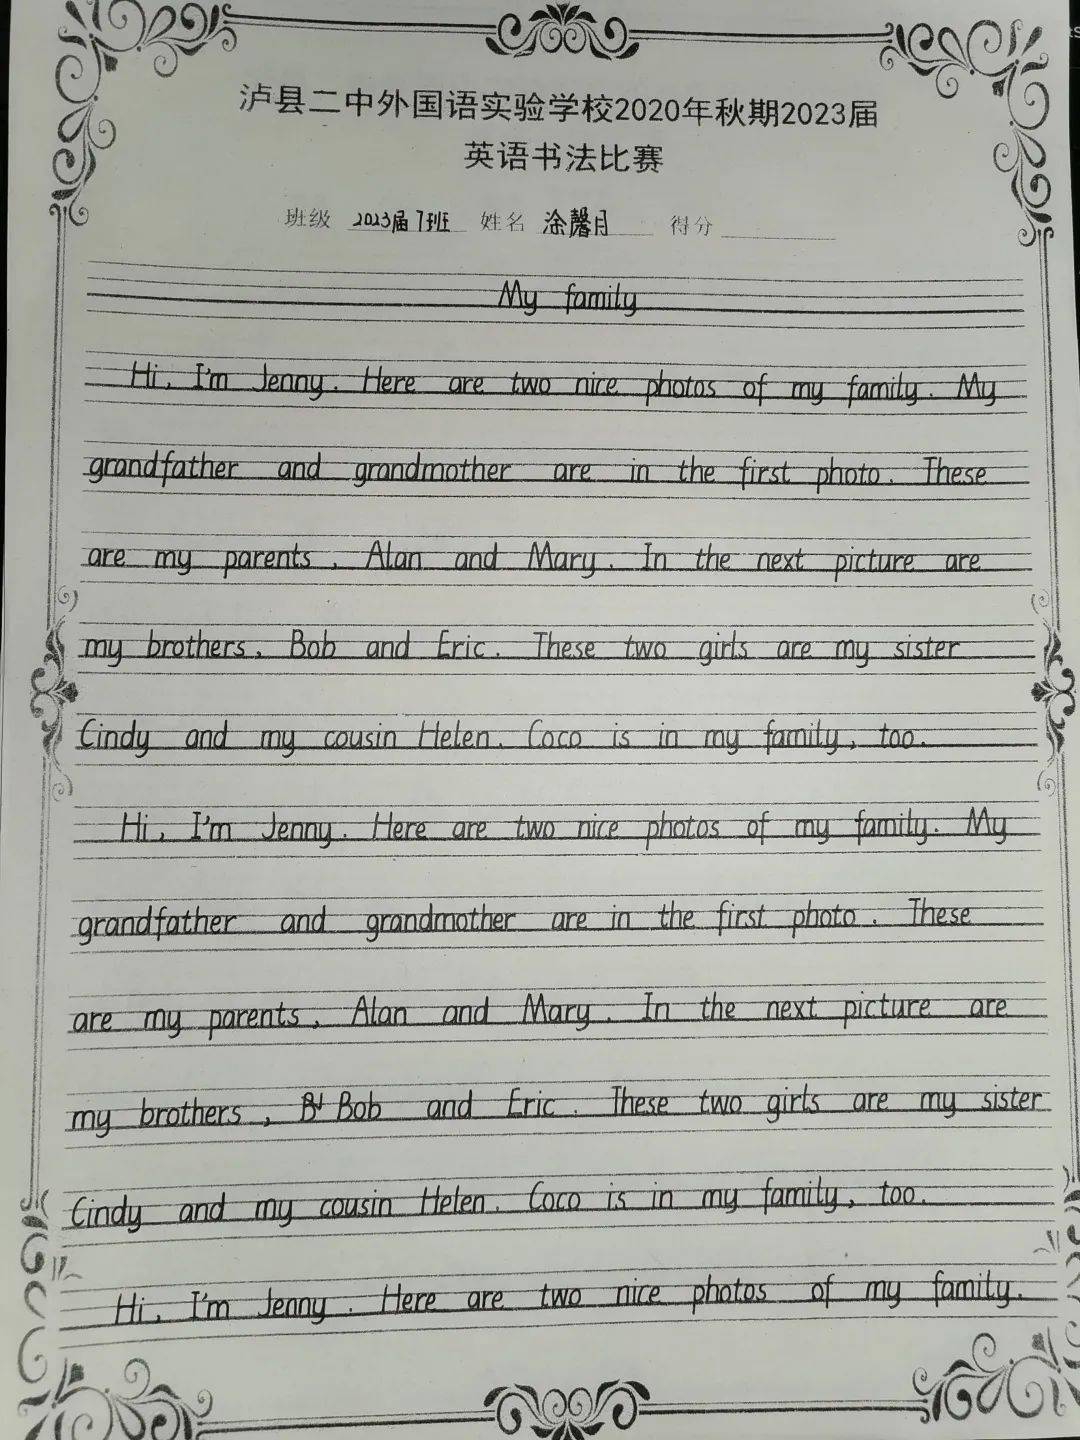 泸县二中外国语实验学校2020年秋期2023届
英语书法比赛
班级 2023届7班 姓名 涂馨月 得分
My family
Hi, I'm Jenny. Here are two nice photos of my family. My
grandfather and grandmother are in the first photo. These
are my parents, Alan and Mary. In the next picture are
my brothers, Bob and Eric. These two girls are my sister
Cindy and my cousin Helen. Coco is in my family, too.
Hi, I'm Jenny. Here are two nice photos of my family. My
grandfather and grandmother are in the first photo. These
are my parents, Alan and Mary. In the next picture are
my brothers, Bob and Eric. These two girls are my sister
Cindy and my cousin Helen. Coco is in my family, too.
Hi, I'm Jenny. Here are two nice photos of my family.